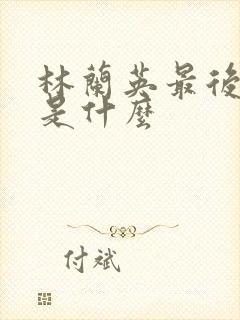 林蘭英最後
是什麼
付斌